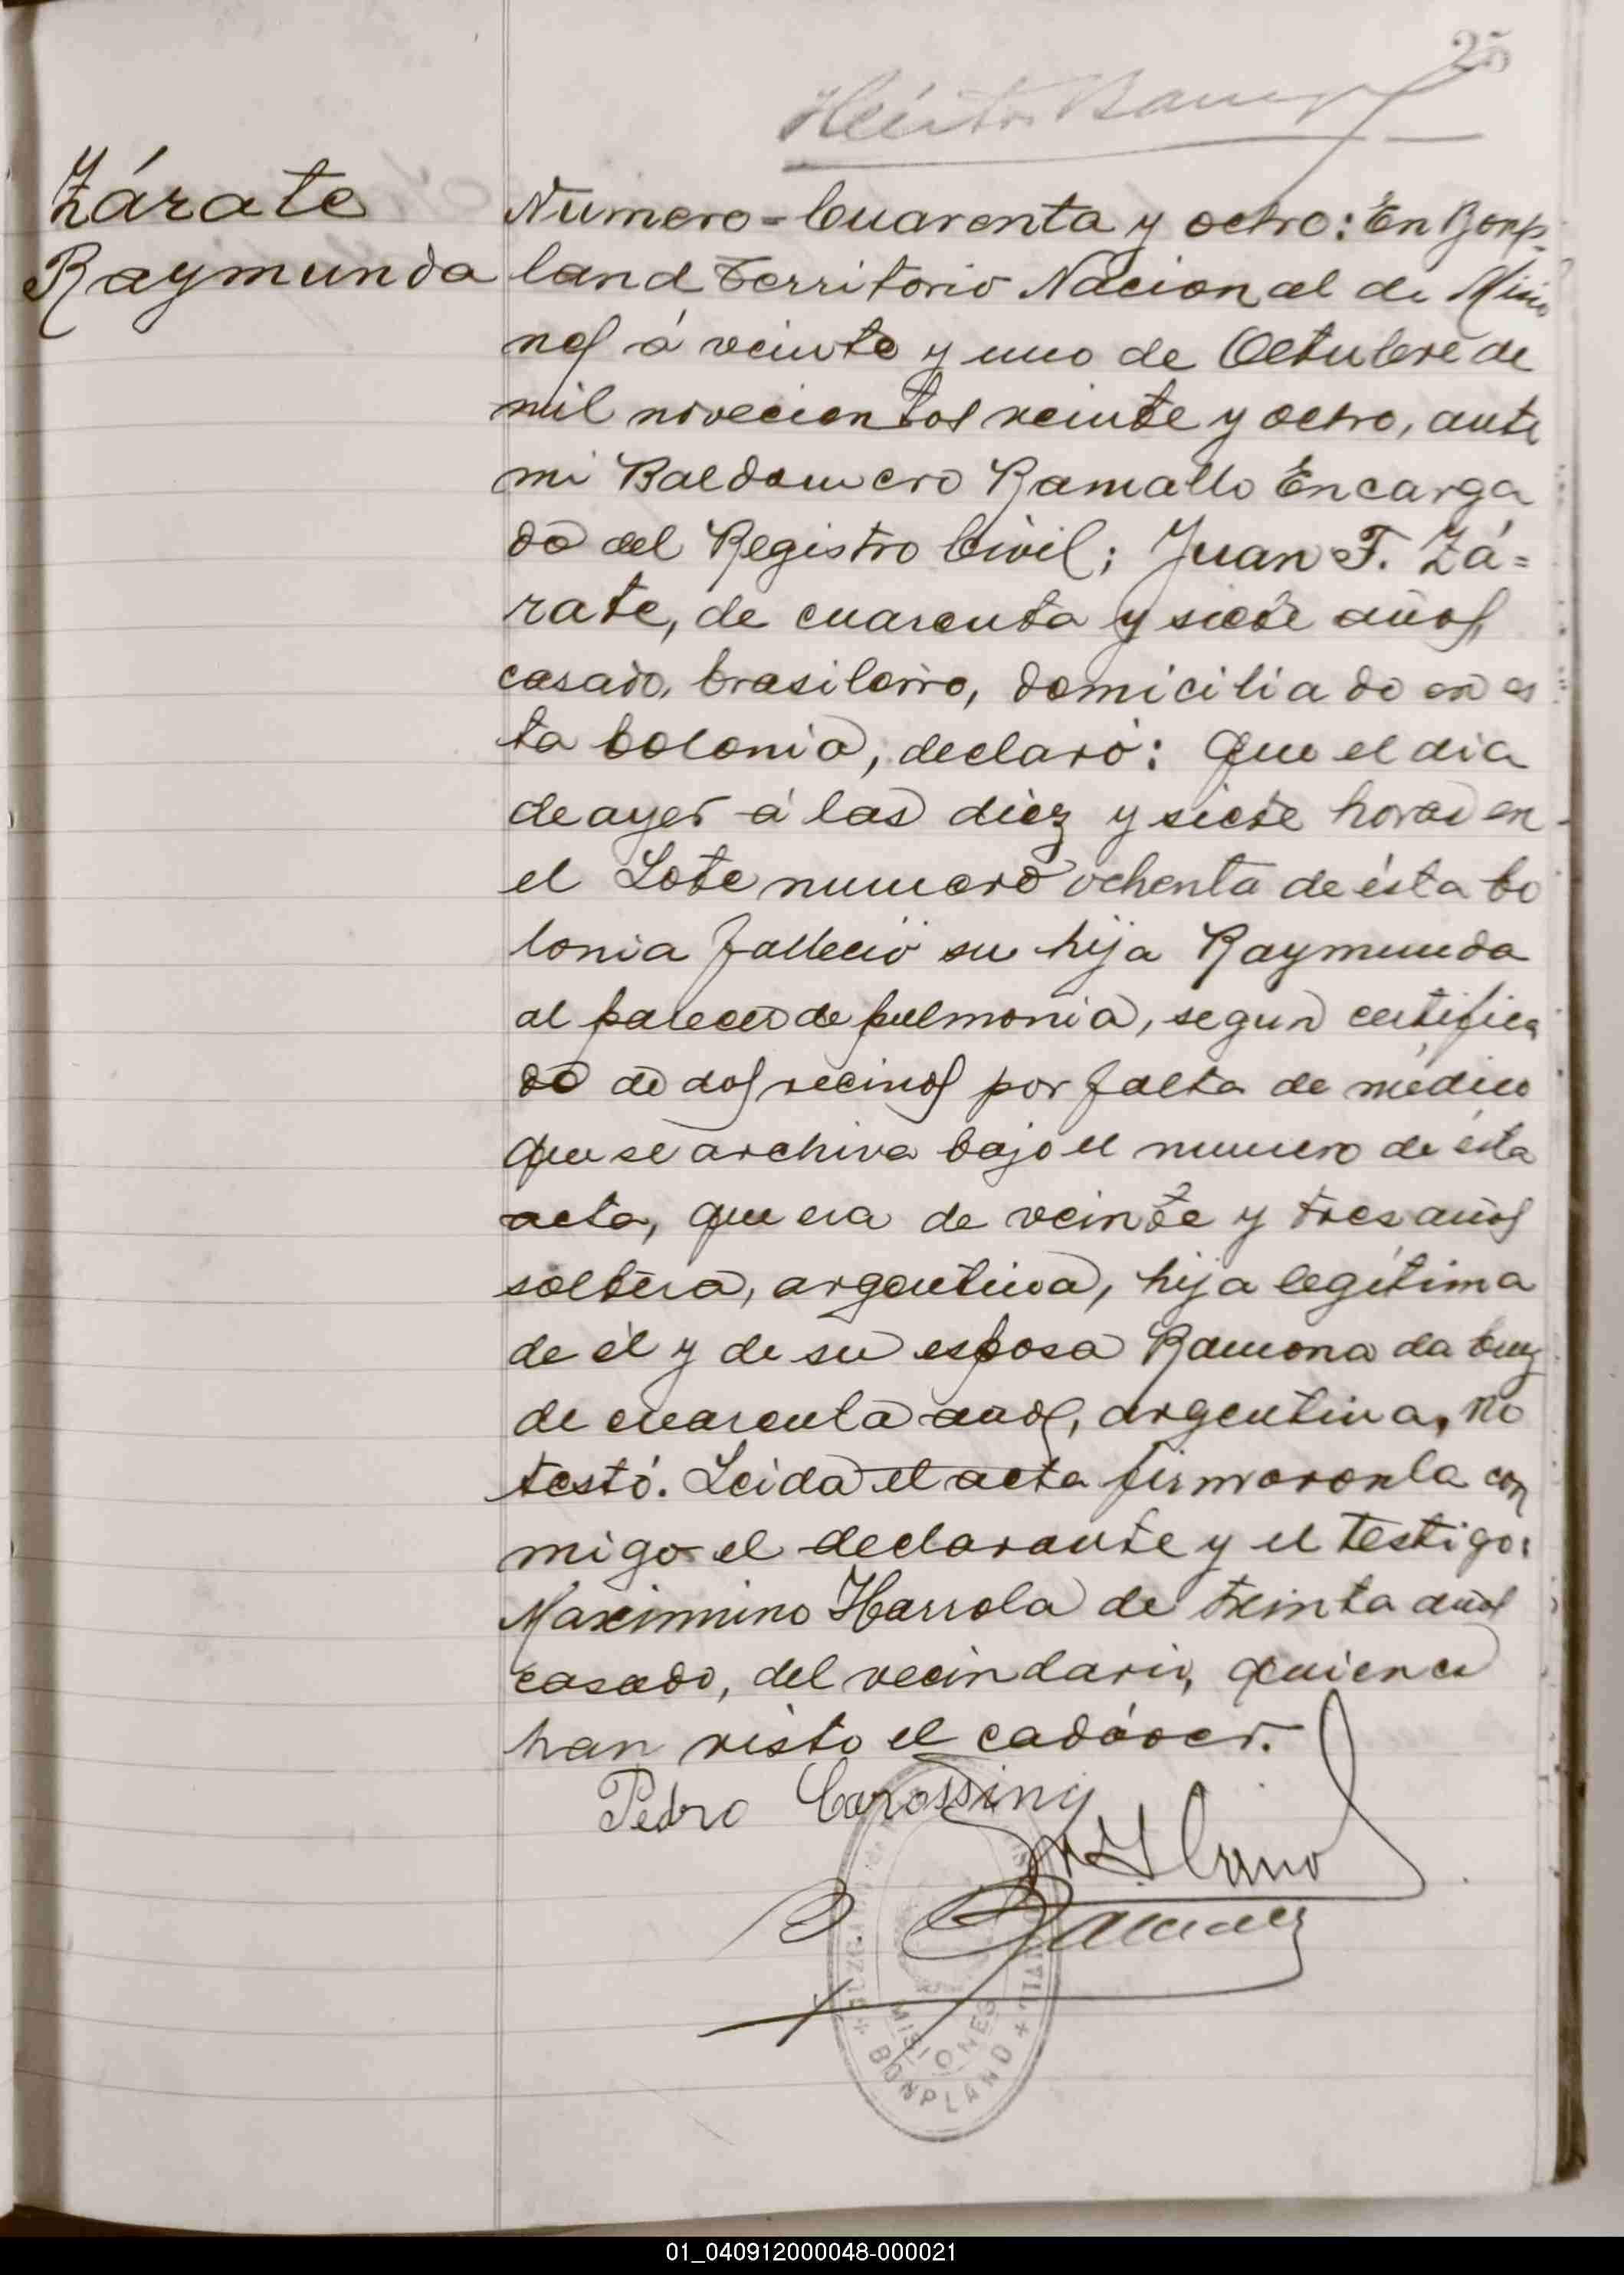 25
Héctor
Zárate
Raymunda
Número = Cuarenta y ocho: En Bonp-
land Territorio Nacional de Misio
nes á veinte y uno de Octubre de
mil novecientos veinte y ocho, ante
mi Baldomero Ramallo Encarga
do del Registro Civil; Juan F. Zá=
rate, de cuarenta y siete años,
casado, brasilerro, domiciliado en es
ta Colonia, declaró: Que el dia
de ayer á las diez y siete horas en
el Lote numero ochenta de ésta Co
lonia falleció su hija Raymunda
al parecer de pulmonia, segun certifica
do de dos vecinos por falta de médico
que se archiva bajo el numero de ésta
acta, que era de veinte y tres años
soltera, argentina, hija legítima
de él y de su esposa Ramona da Cruz
de cuarenta años, argentina, no
testó. Leida el acta firmaronla con
migo el declarante y el testigo:
Maximino de treinta años
casado, del vecindario, quienes
han visto el cadáver.
Pedro Carossiny
MISIONES
* BONPLAND *
01_040912000048-000021